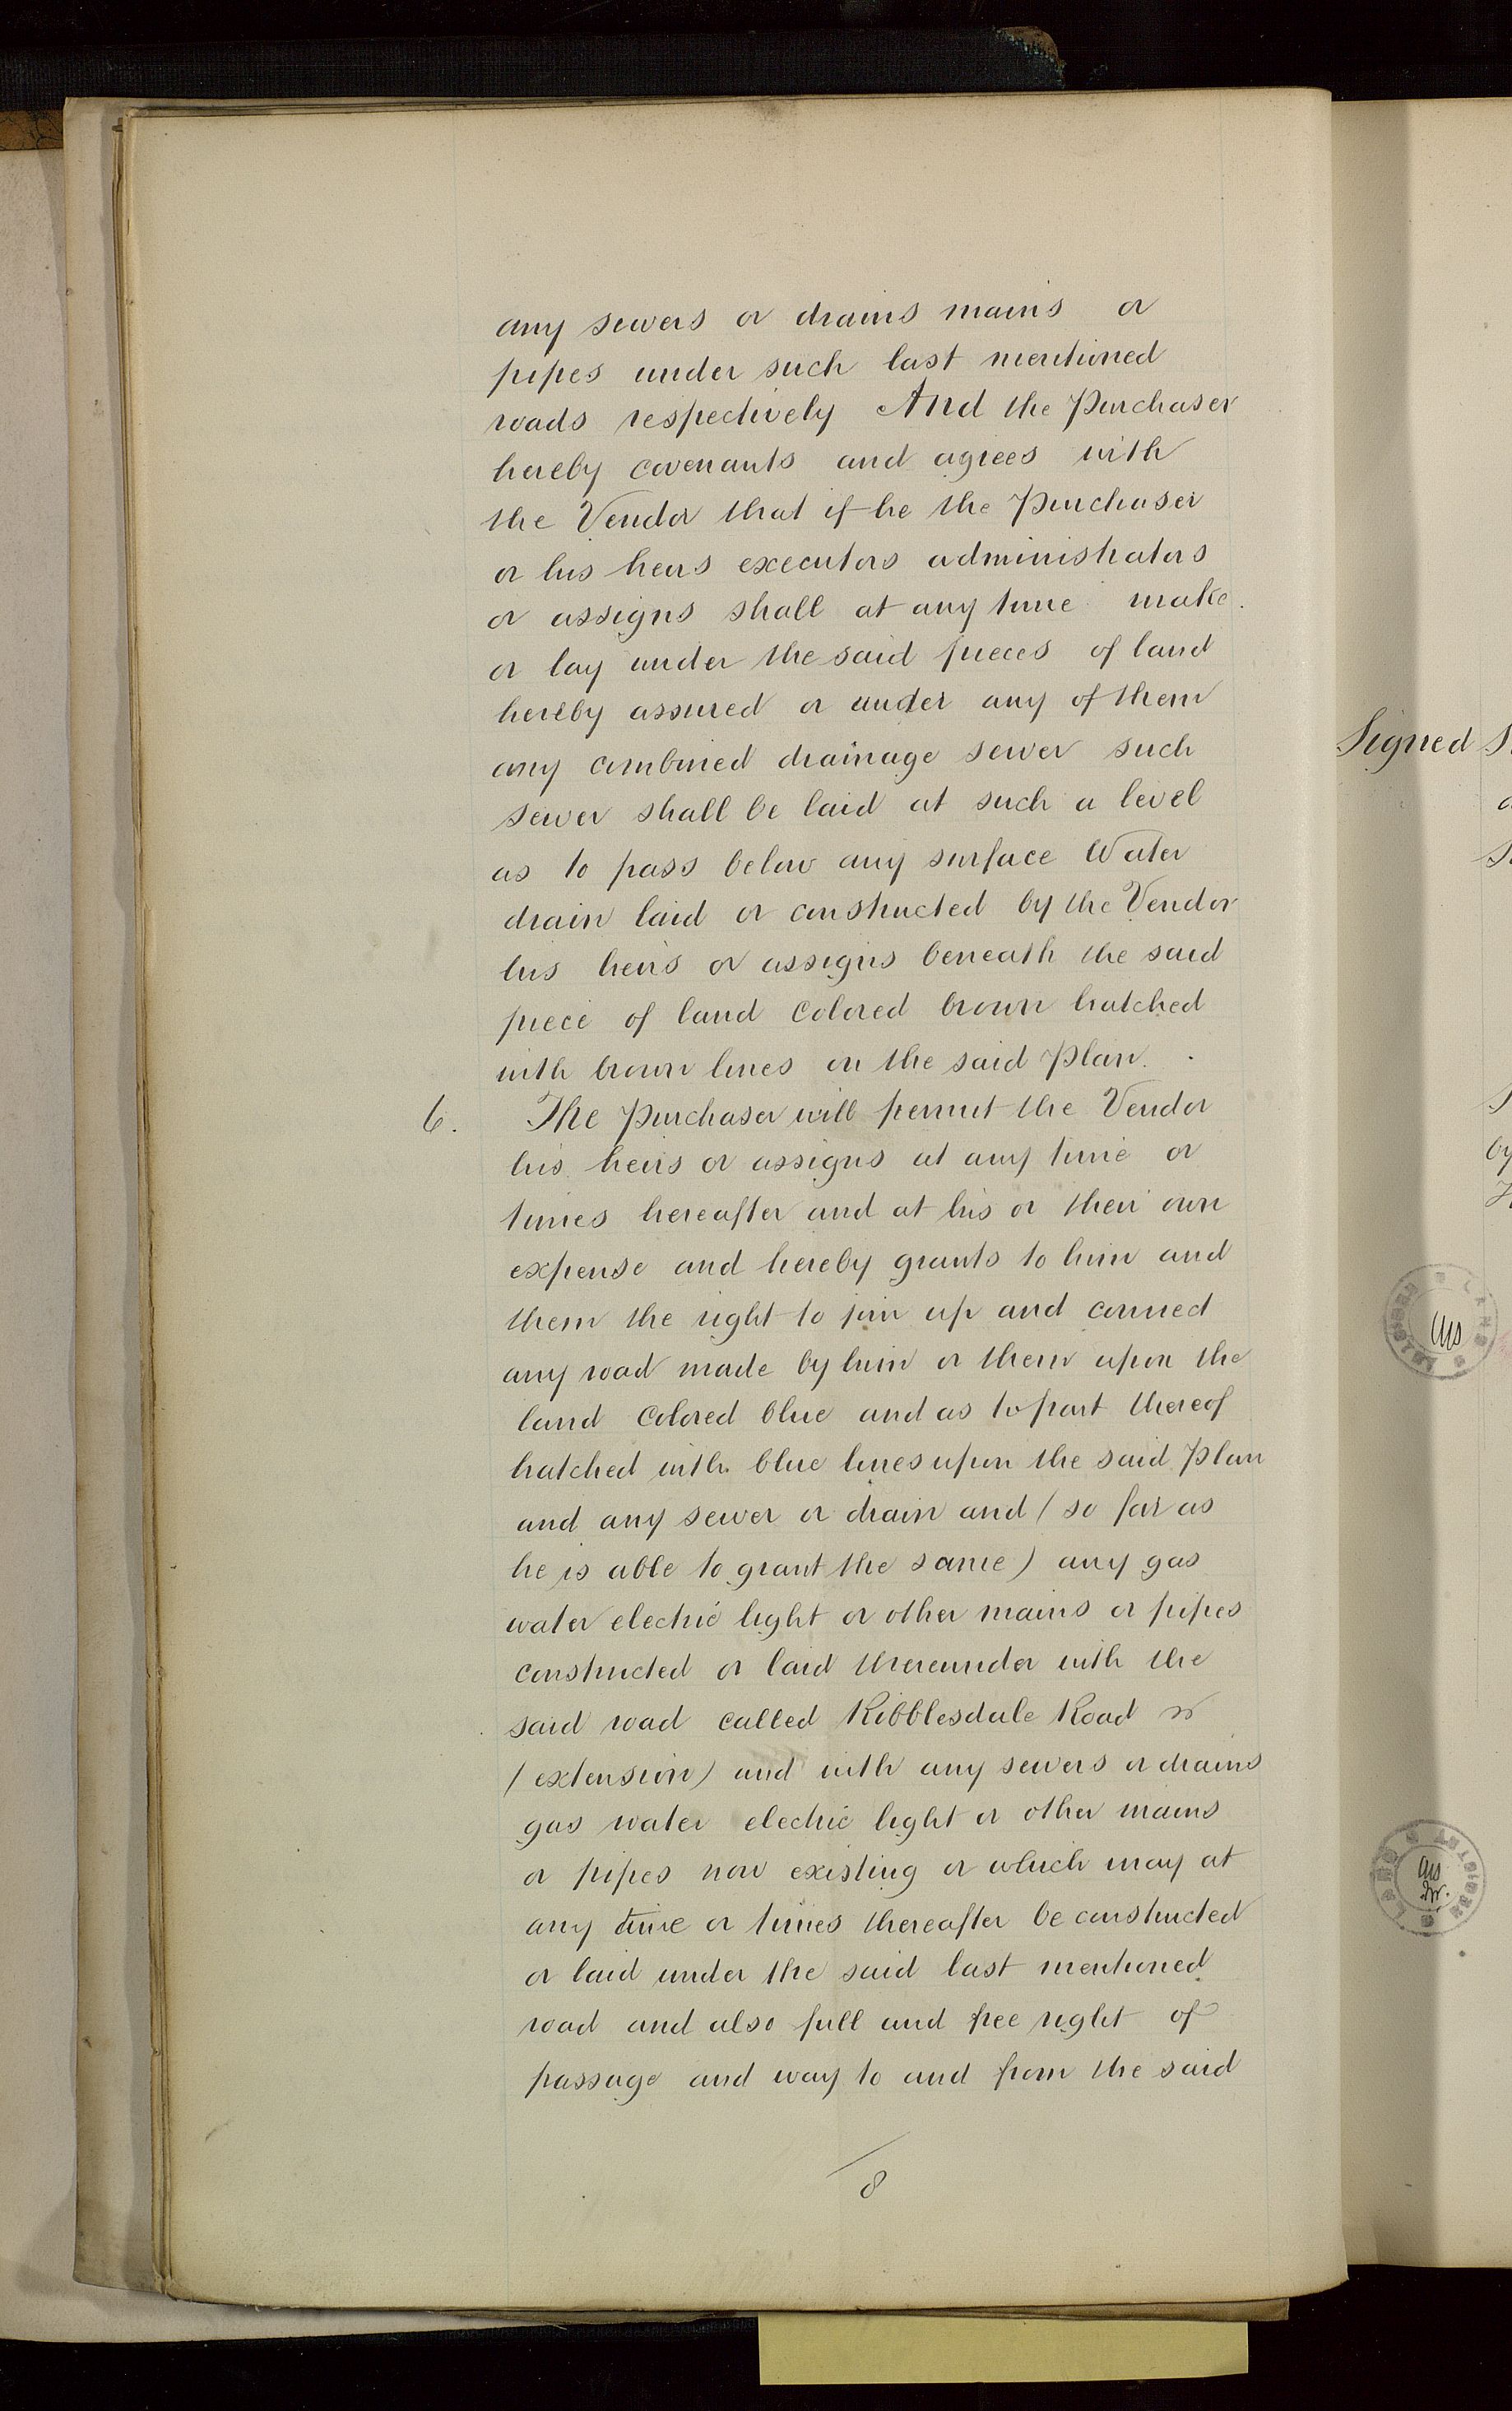 any sewers or drains mains or
pipes under such last mentioned
roads respectively And the Purchaser
hereby covenants and agrees with
the Vendor that if he the Purchaser
or his heirs executors administrators
or assigns shall at any time make
or lay under the said pieces of land
hereby assured or under any of them
any combined drainage sewer such
sewer shall be laid at such a level
as to pass below any surface Water
drain laid or constructed by the Vendor
his heirs or assigns beneath the said
piece of land colored brown hatched
with brown lines on the said Plan.
6. The Purchaser will permit the Vendor
his heirs or assigns at any time or
times hereafter and at his or their own
expense and hereby grants to him and
them the right to join up and connect
any road made by him or them upon the
land colored blue and as to part thereof
hatched with blue lines upon the said Plan
and any sewer or drain and (so far as
he is able to grant the same) any gas
water electric light or other mains or pipes
constructed or laid thereunder with the
said road called Ribblesdale Road
(extension) and with any sewers or drains
gas water electric light or other mains
or pipes now existing or which may at
any time or times thereafter be constructed
or laid under the said last mentioned
road and also full and free right of
passage and way to and from the said
8
Signed
by